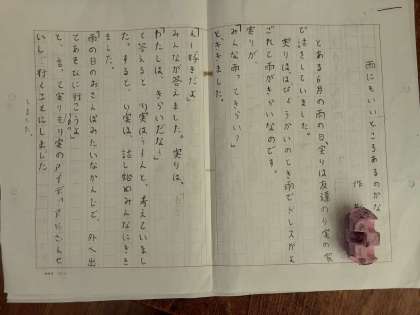 雨にもいいところあるのかな
作
とある6月の雨の日、実りは友達のり実の家
で話をしていました。
実りははっぴょうかいのとき雨でドレスがよ
ごれて雨がきらいなのです。
実りが、
「みんな雨ってきらい？」
と、ききました。
「え～好きだよ」
みんなが答えました。実りは、
「わたしは、きらいだな～」
と答えると、り実はうーんと、考えていまし
た。すると、り実は、話し始めみんなにきき
ました。
「雨の日のおさんぽみたいなかんじで、外へ出
てあそびに行こうよ」
と、言って実りもり実のアイディアにさんせ
いし、行くことにしました
しました。